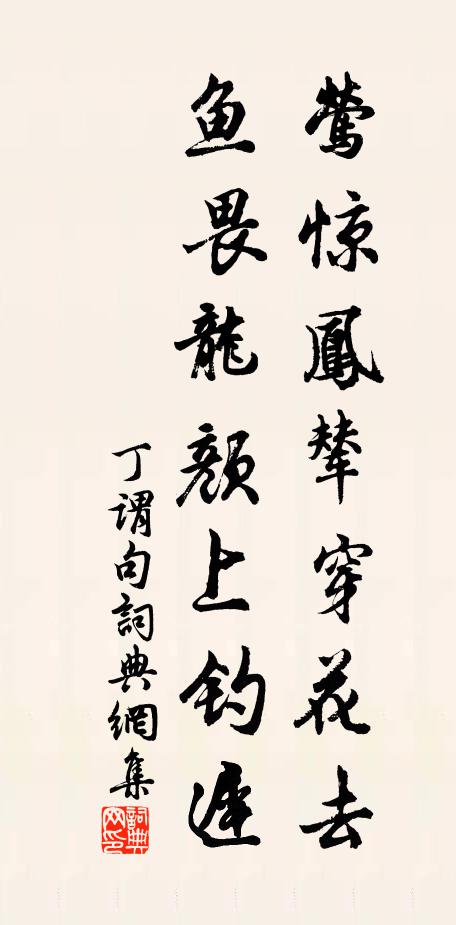 莺惊鳳辇穿花去
鱼畏龍颜上钓遲
丁谓句詞典網集
詞典網印